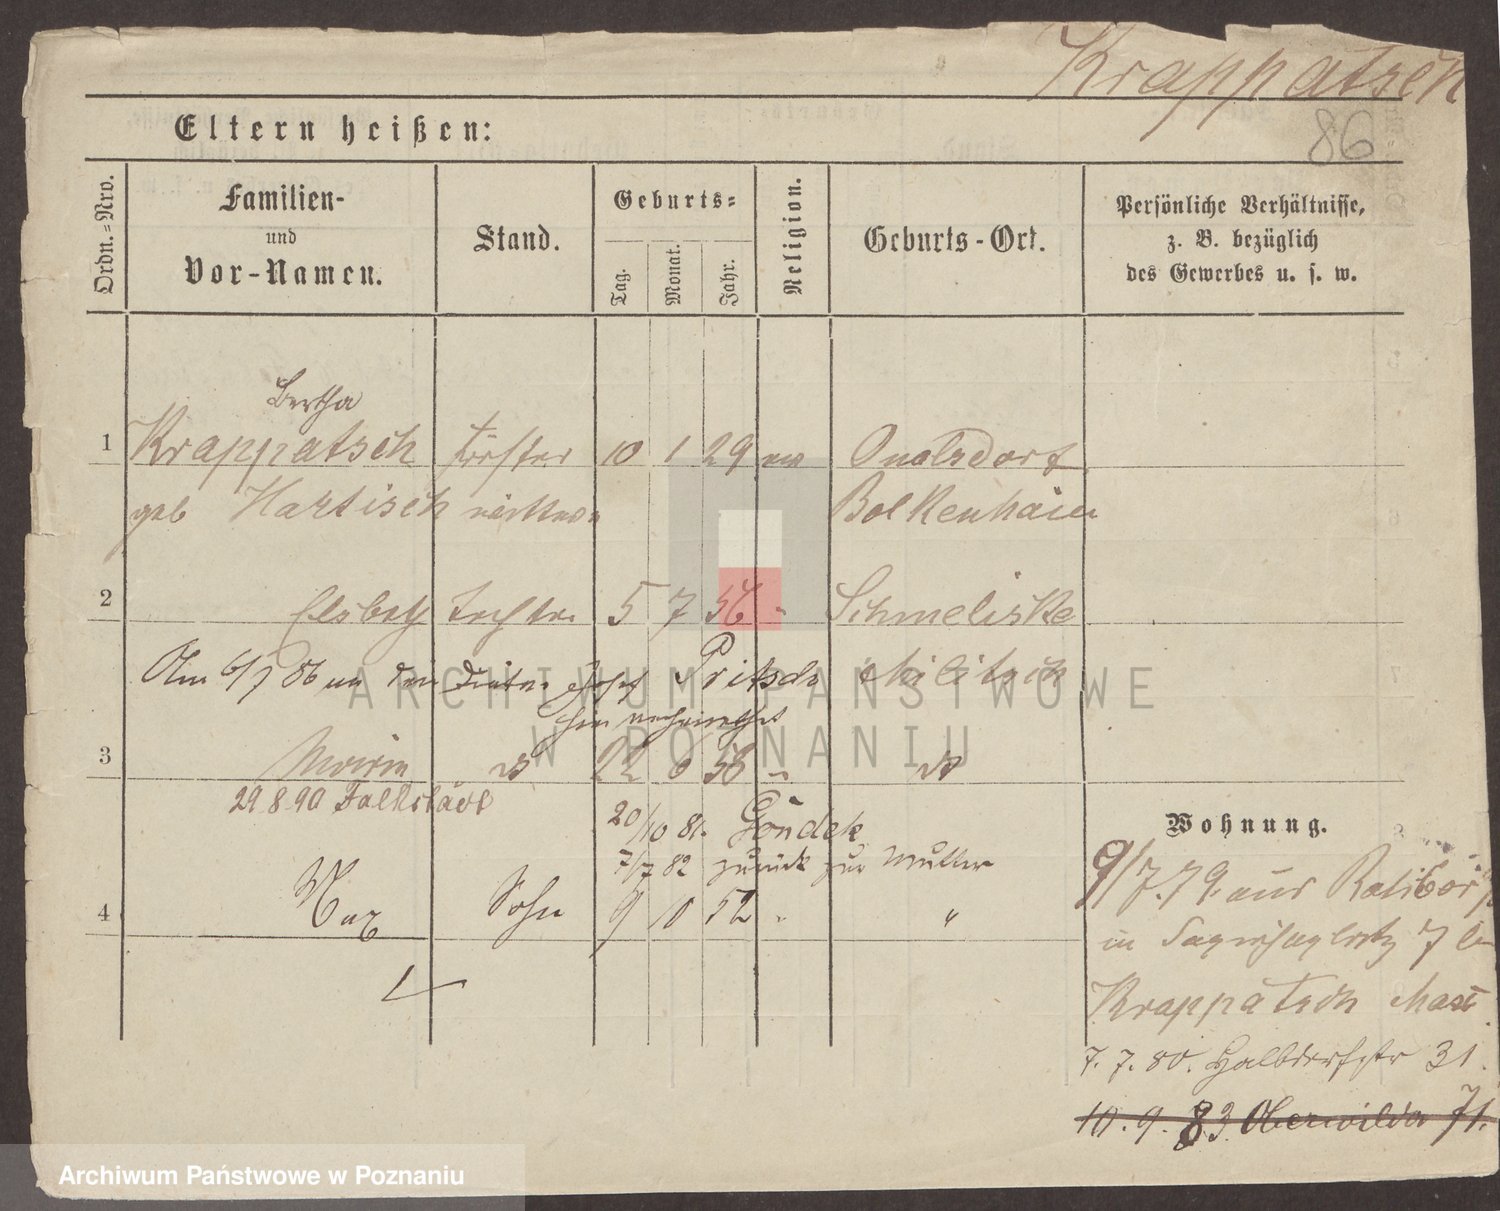 Krappatsch
86
Eltern heißen:
Ordn.=Nro.
Familien-
und
Vor-Namen.
Stand.
Geburts=
Tag.
Monat.
Jahr.
Religion.
Geburts-Ort.
Persönliche Verhältnisse,
z. B. bezüglich
des Gewerbes u. s. w.
Bertha
1 Krappatsch Förster 10 1 29 ev
geb Hartisch Bolkenhain
2 Elsbeth Tochter 5 7 56 " Schmeliske
Am 6/7 86 an den Josef Pritsch Militsch
hier verheirathet
3 22 58 "
29 8 90
20/10 81. Gondek
7/7 82 zurück zur Mutter
4 Max Sohn 9 10 52 " "
Wohnung.
9/7.79. aus Ratibor
in 7
Krappatsch Max
7. 7. 80. Halbdorfstr 31.
10. 9. 83. Oberwilda 71.
ARCHIWUM PAŃSTWOWE
W POZNANIU
Archiwum Państwowe w Poznaniu